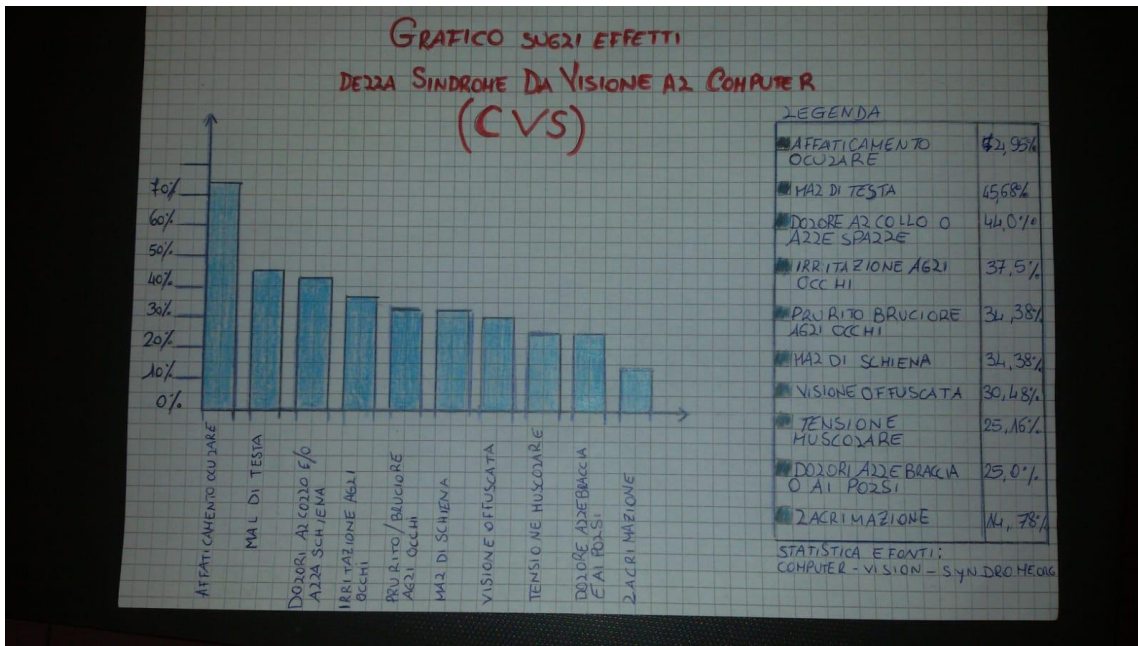 GRAFICO SUGLI EFFETTI
DELLA SINDROME DA VISIONE AL COMPUTER
(CVS)
70%
60%
50%
40%
30%
20%
10%
0%
AFFATICAMENTO OCULARE
MAL DI TESTA
DOLORI AL COLLO E/O
ALLA SCHIENA
IRRITAZIONE AGLI
OCCHI
PRURITO/BRUCIORE
AGLI OCCHI
MAL DI SCHIENA
VISIONE OFFUSCATA
TENSIONE MUSCOLARE
DOLORE ALLE BRACCIA
E AI POLSI
LACRIMAZIONE
LEGENDA
AFFATICAMENTO 72,95%
OCULARE
MAL DI TESTA 45,68%
DOLORE AL COLLO O 44,0%
ALLE SPALLE
IRRITAZIONE AGLI 37,5%
OCCHI
PRURITO BRUCIORE 34,38%
AGLI OCCHI
MAL DI SCHIENA 34,38%
VISIONE OFFUSCATA 30,48%
TENSIONE 25,16%
MUSCOLARE
DOLORI ALLE BRACCIA 25,0%
O AI POLSI
LACRIMAZIONE 14,78%
STATISTICA E FONTI:
COMPUTER-VISION-SYNDROME.ORG